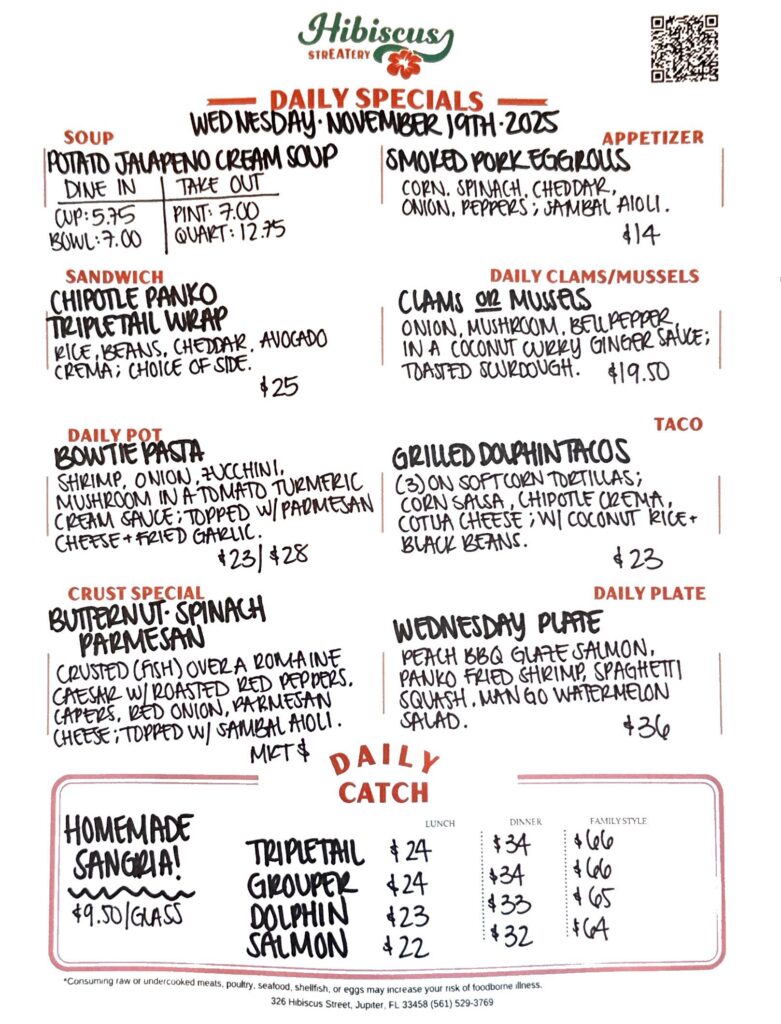 Hibiscus
STREATERY
DAILY SPECIALS
WEDNESDAY · NOVEMBER 19TH · 2025
SOUP
POTATO JALAPENO CREAM SOUP
DINE IN | TAKE OUT
CUP: 5.75 | PINT: 7.00
BOWL: 7.00 | QUART: 12.75
APPETIZER
SMOKED PORK EGGROLLS
CORN, SPINACH, CHEDDAR,
ONION, PEPPERS; SAMBAL AIOLI.
$14
SANDWICH
CHIPOTLE PANKO
TRIPLETAIL WRAP
RICE, BEANS, CHEDDAR, AVOCADO
CREMA; CHOICE OF SIDE.
$25
DAILY CLAMS/MUSSELS
CLAMS OR MUSSELS
ONION, MUSHROOM, BELL PEPPER
IN A COCONUT CURRY GINGER SAUCE;
TOASTED SOURDOUGH. $19.50
DAILY POT
BOWTIE PASTA
SHRIMP, ONION, ZUCCHINI,
MUSHROOM IN A TOMATO TURMERIC
CREAM SAUCE; TOPPED W/ PARMESAN
CHEESE + FRIED GARLIC.
$23/$28
TACO
GRILLED DOLPHIN TACOS
(3) ON SOFT CORN TORTILLAS;
CORN SALSA, CHIPOTLE CREMA,
COTIJA CHEESE; W/ COCONUT RICE +
BLACK BEANS.
$23
CRUST SPECIAL
BUTTERNUT · SPINACH
PARMESAN
CRUSTED (FISH) OVER A ROMAINE
CAESAR W/ ROASTED RED PEPPERS,
CAPERS, RED ONION, PARMESAN
CHEESE; TOPPED W/ SAMBAL AIOLI.
MKT $
DAILY PLATE
WEDNESDAY PLATE
PEACH BBQ GLAZE SALMON,
PANKO FRIED SHRIMP, SPAGHETTI
SQUASH, MANGO WATERMELON
SALAD.
$36
DAILY
CATCH
HOMEMADE
SANGRIA!
$9.50/GLASS
LUNCH DINNER FAMILY STYLE
TRIPLETAIL $24 $34 $66
GROUPER $24 $34 $66
DOLPHIN $23 $33 $65
SALMON $22 $32 $64
*Consuming raw or undercooked meats, poultry, seafood, shellfish, or eggs may increase your risk of foodborne illness.
326 Hibiscus Street, Jupiter, FL 33458 (561) 529-3769